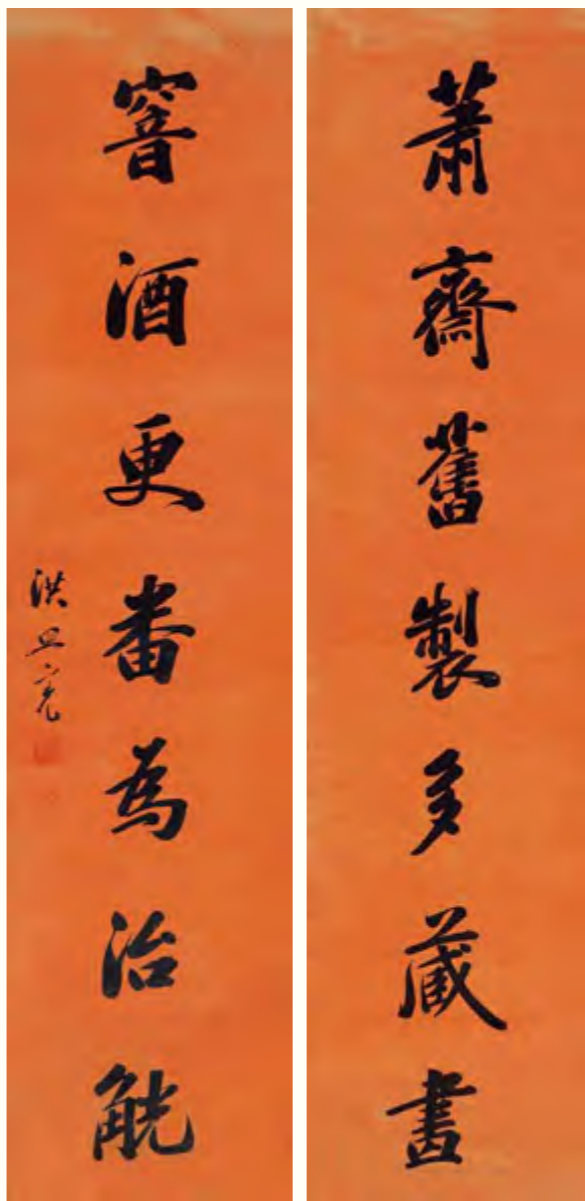 蕭齋舊製多藏畫
窨酒更番為治觥
洪思亮